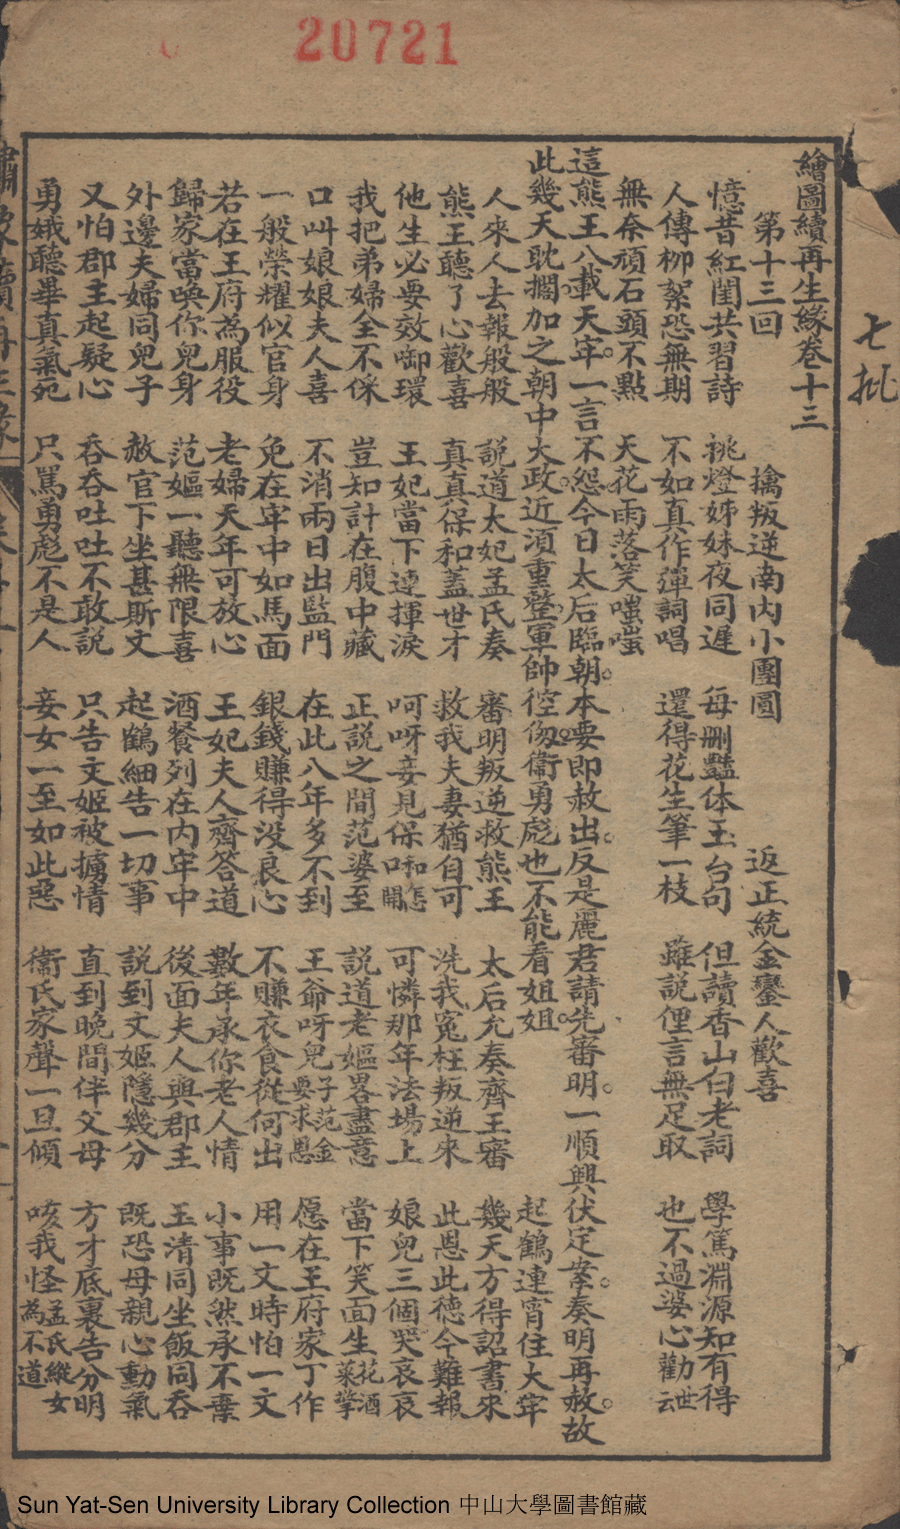 20721
七批
繪圖續再生緣卷十三
第十三回 擒叛逆南内小團圓 返正統金鑾人歡喜
憶昔紅閨共習詩 挑燈姊妹夜同遲 每刪豔体玉台句 但讀香山白老詞 學篤淵源知有得
人傳柳絮恐無期 不如真作彈詞唱 還得花生筆一枝 雖說俚言無足取 也不過婆心勸世云
無奈頑石頭不點 天花雨落笑嗤嗤
這熊王八載天牢。一言不怨。今日太后臨朝。本要即赦出。反是麗君請先審明。一順興伏定案。奏明再赦。故
此幾天耽擱。加之朝中大政。近須重整軍帥。徑傷。衛勇彪也不能看姐姐。 起鶴連宵住大牢
人來人去報般般 說道太妃孟氏奏 審明叛逆救熊王 太后允奏齊王審 幾天方得詔書來
熊王聽了心歡喜 真真保和蓋世才 救我夫妻猶自可 洗我冤枉叛逆來 此恩此德今難報
他生必要效啣環 王妃當下連揮淚 呵呀妾見保和怎口開 可憐那年法場上 娘兒三個哭哀哀
我把弟婦全不保 豈知計在腹中藏 正說之間范婆至 說道老嫗畧盡意 當下笑面生花酒菜擎
口叫娘娘夫人喜 不消兩日出監門 在此八年多不到 王爺呀兒子范金要求恩 愿在王府家丁作
一般榮耀似官身 免在牢中如馬面 銀錢賺得没良心 不賺衣食從何出 用一文時怕一文
若在王府為服役 老婦天年可放心 王妃夫人齊答道 數年承你老人情 小事既然承不棄
歸家當喚你兒身 范嫗一聽無限喜 酒餐列在内牢中 後面夫人與郡主 玉清同坐飯同吞
外邊夫婦同兒子 赦官下坐甚斯文 起鶴細告一切事 說到文姬隱幾分 既恐母親心動氣
又怕郡主起疑心 吞吞吐吐不敢説 只告文姬被擄情 直到晚間伴父母 方才底裏告分明
勇娥聽畢真氣死 只罵勇彪不是人 妾女一至如此惡 衞氏家聲一旦傾 咳我怪孟氏縱女為不道
Sun Yat-Sen University Library Collection 中山大學圖書館藏